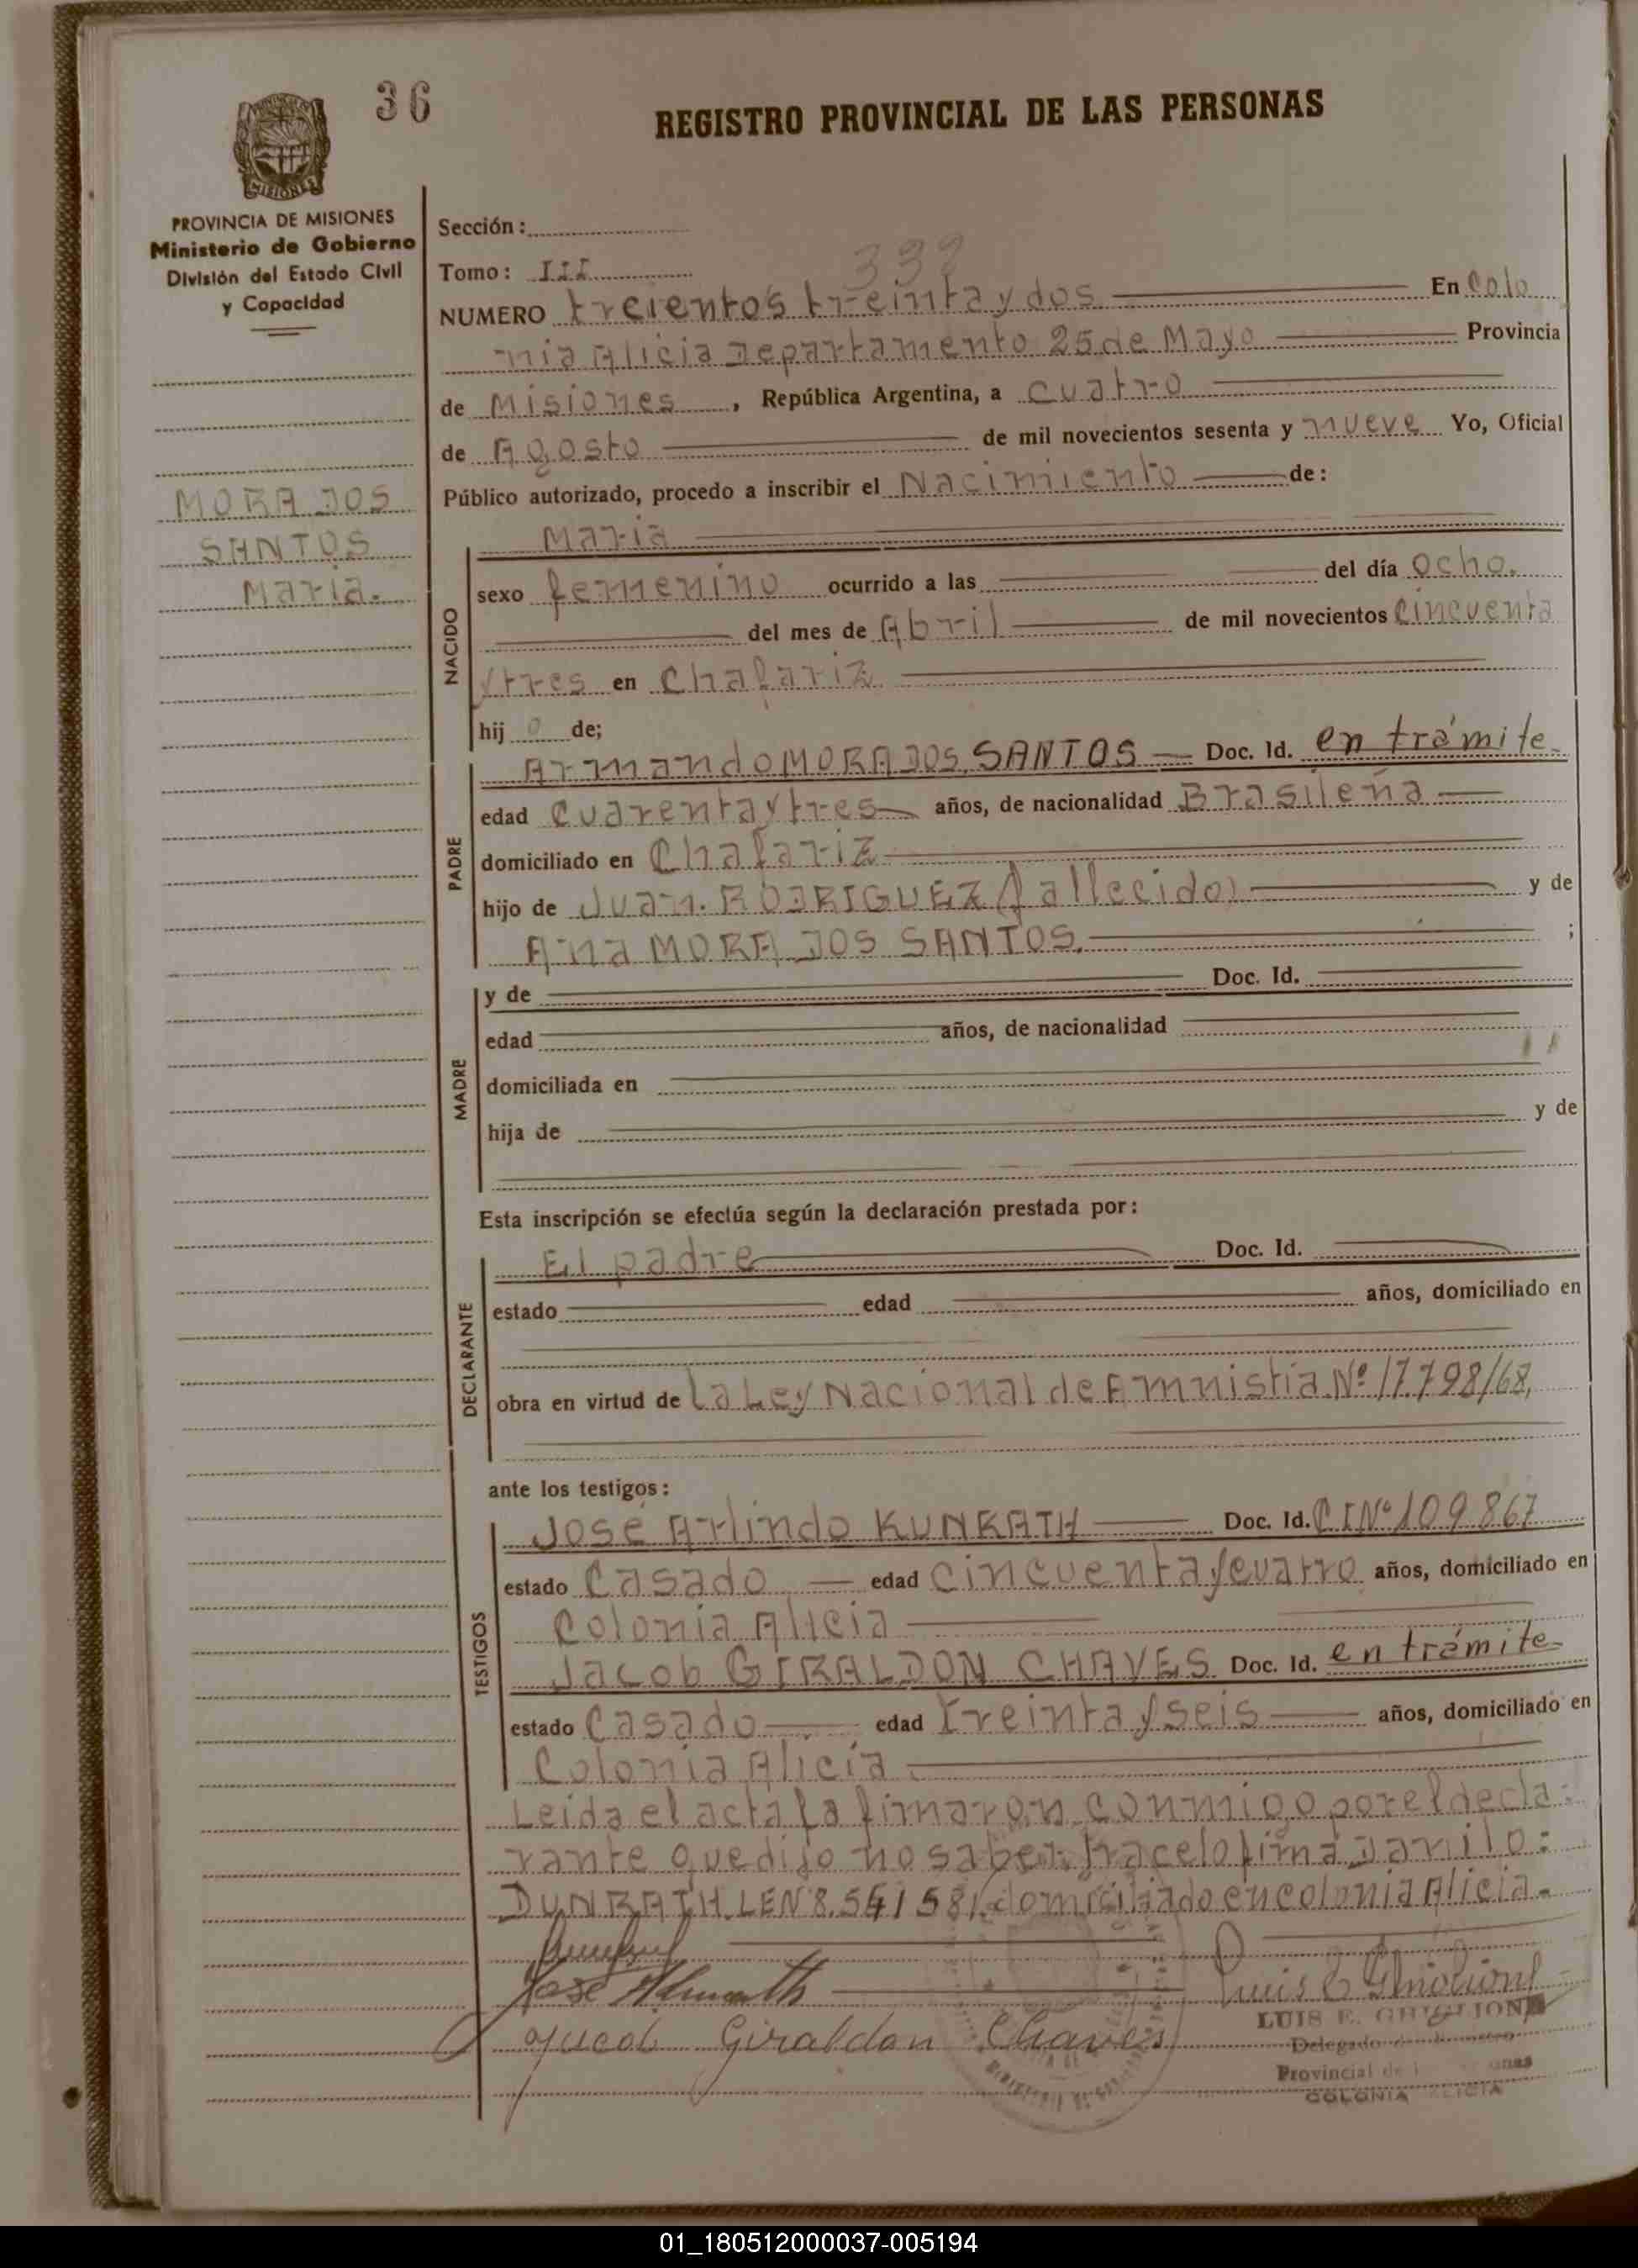 36
REGISTRO PROVINCIAL DE LAS PERSONAS
MISIONES
PROVINCIA DE MISIONES
Ministerio de Gobierno
División del Estado Civil
y Capacidad
MORA DOS
SANTOS
Maria.
Sección:
Tomo: III
332
NUMERO trecientos treinta y dos En Colo
nia Alicia Departamento 25 de Mayo Provincia
de Misiones, República Argentina, a cuatro
de Agosto de mil novecientos sesenta y nueve Yo, Oficial
Público autorizado, procedo a inscribir el Nacimiento de:
Maria
NACIDO
sexo femenino ocurrido a las del día ocho.
del mes de Abril de mil novecientos cincuenta
y tres en Chafariz
hij o de;
PADRE
Armando MORA DOS SANTOS Doc. Id. en trámite
edad cuarenta y tres años, de nacionalidad Brasileña
domiciliado en Chafariz
hijo de Juan RODRIGUEZ (fallecido) y de
Ana MORA DOS SANTOS. ;
MADRE
y de Doc. Id.
edad años, de nacionalidad
domiciliada en
hija de y de
Esta inscripción se efectúa según la declaración prestada por:
DECLARANTE
El padre Doc. Id.
estado edad años, domiciliado en
obra en virtud de la Ley Nacional de Amnistia Nº 17.798/68,
ante los testigos:
TESTIGOS
José Arlindo KUNRATH Doc. Id. C I Nº 109867
estado Casado edad cincuenta y cuatro años, domiciliado en
Colonia Alicia
Jacob GIRALDON CHAVES Doc. Id. en trámite
estado Casado edad treinta y seis años, domiciliado en
Colonia Alicia
Leida el acta la fimaron conmigo por el decla-
rante que dijo no saber hacelo fima Danilo:
DUNRATH LEN 8.541581 domiciliado en colonia Alicia.
José
Luis E.
LUIS E. GHIGLIONE
Jacob Giraldon Chaves
Delegado
Provincial de
COLONIA ALICIA
01_180512000037-005194